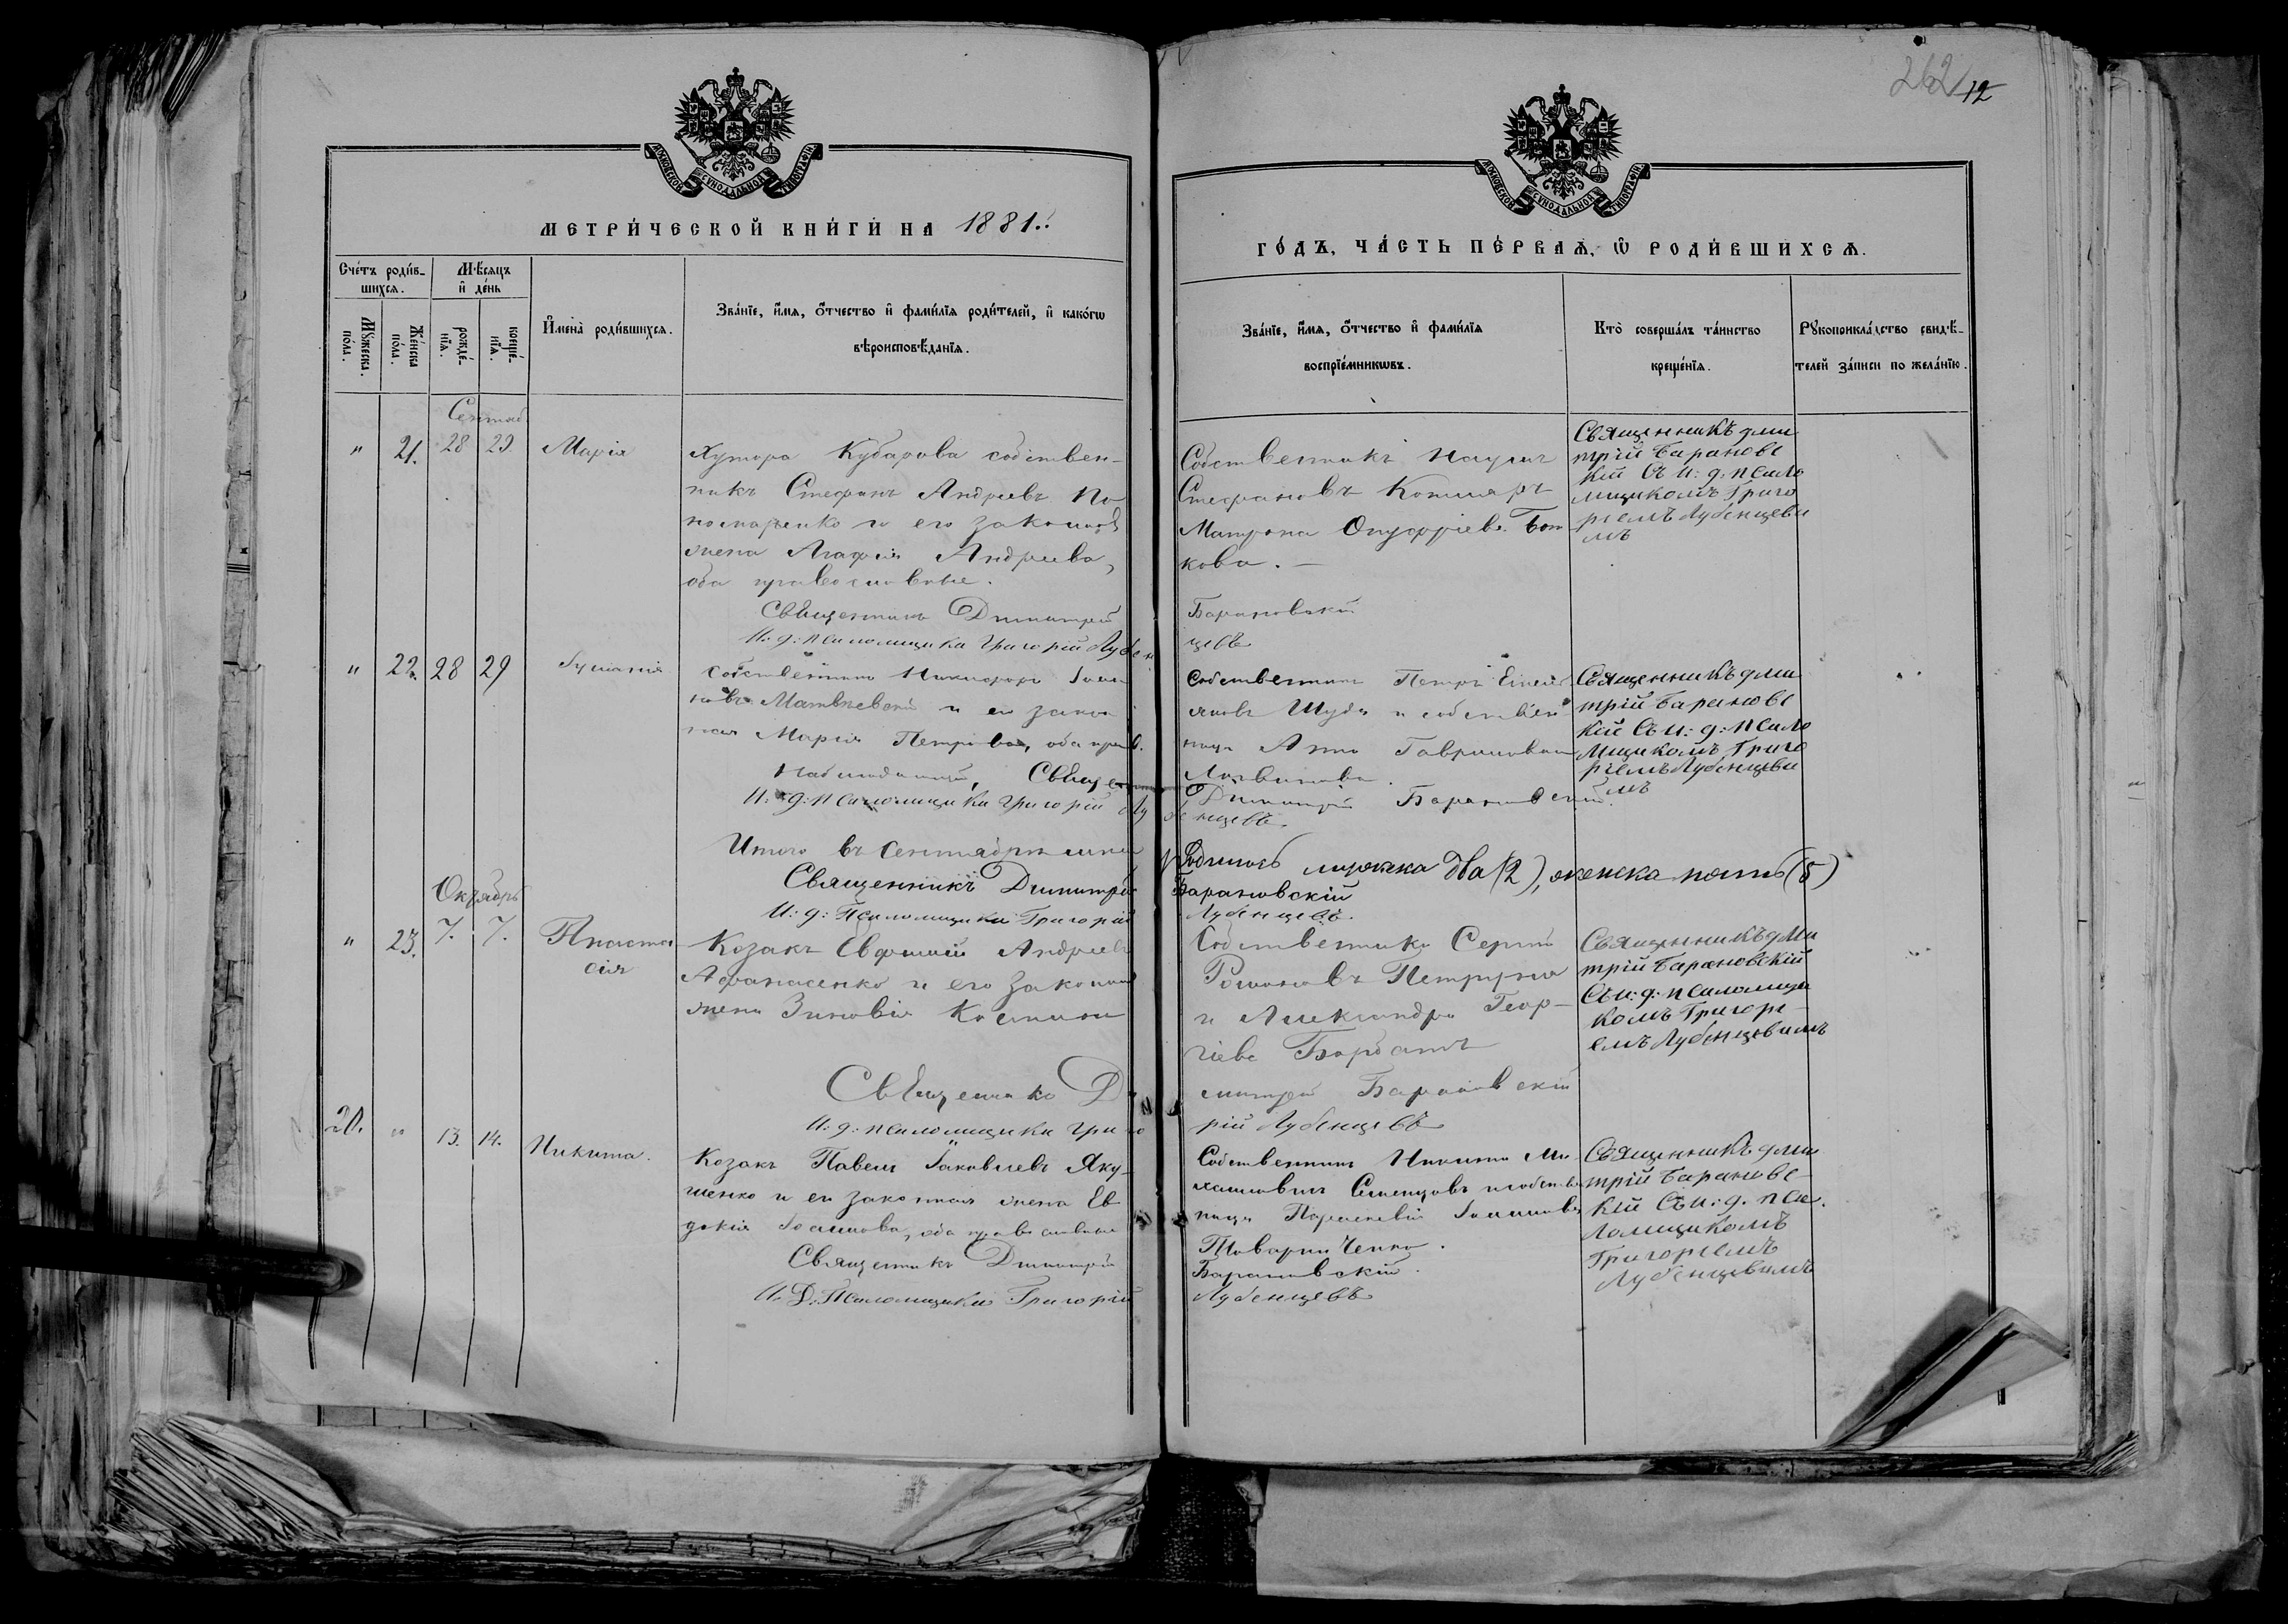 262/12
МОСКОВСКОЙ СѴНОДАЛЬНОЙ ТИПОГРАФІИ
МОСКОВСКОЙ СѴНОДАЛЬНОЙ ТИПОГРАФІИ
МЕТРИ́ЧЕСКОЙ КНИ́ГИ НА 1881.
ГО́ДЪ, ЧА́СТЬ ПЕ́РВАѦ, Ѡ РОДИ́ВШИХСѦ.
Сче́тъ роди́в-
шихсѧ.
Мꙋ́жеска по́ла.
Же́нска по́ла.
Мѣ́сѧцъ
и҆ де́нь
рожде́-нїѧ.
креще́-нїѧ.
И҆мена̀ роди́вшихсѧ.
Зва́нїе, и҆́мѧ, ѻ҆́тчество и҆ фами́лїѧ роди́телей, и҆ како́гѡ
вѣроисповѣ́данїѧ.
Зва́нїе, и҆́мѧ, ѻ҆́тчество и҆ фами́лїѧ
воспрїе́мникѡвъ.
Кто̀ соверша́лъ та́инство
креще́нїѧ.
Рꙋкоприкла́дство свидѣ́-
телей за́писи по жела́нїю.
Сентяб
" 21. 28 29. Марія
Хутора Кубарова собствен-
никъ Стефанъ Андреевъ По
номаренко и его законная
жена Агафія Андреева,
оба православные.
Священникъ Димитрій
И: д: псаломщика Григорій Лубен
Собственникъ
Стефановъ
Матрона Онуфріева
кова. —
Барановскій
цевъ
Священникъ Дми
трій Барановс
кій Съ И: д: псало
мщикомъ Григо
ріемъ Лубенцевы
мъ
" 22. 28 29
Собственникъ Никифоръ
новъ Матвіевскій и его закон
ная Марія Петрова, оба прав.
Священ
И: д: псаломщика Григорій Лу
Собственникъ Петръ
и собствен
ница Анна Гавриилова
Димитрій Барановскій.
бенцевъ.
Священникъ Дми
трій Барановс
кій Съ И: д: псало
мщикомъ Григо
ріемъ Лубенцевы
мъ
Итого въ Сентябрѣ
родилось мужска два (2), женска пять (5)
Священникъ Димитрій
Барановскій
И: д: Псаломщика Григорій
Лубенцевъ.
Октябрь
" 23. 7. 7. Анаста
сія
Козакъ Евфимій Андреевъ
Афанасенко и его законная
жена Зиновія
Священникъ Ди
И: д: псаломщика Григо
Собственникъ Сергій
Романовъ
и Александра Геор-
гіева
митрій Барановскій
рій Лубенцевъ
Священникъ Дми
трій Барановскій
Съ и: д: псаломщи
комъ Григорі-
емъ Лубенцевымъ
20. " 13. 14. Никита.
Козакъ Павелъ Іаковлевъ Яку-
шенко и его законная жена Ев
докія Іоаннова, оба православные
Священникъ Димитрій
И. Д: Псаломщика Григорій
Собственникъ Никита Ми
хаиловичъ Семенцовъ и собствен
ница Параскевія Іоаннова
Товарниченко.
Барановскій.
Лубенцевъ
Священникъ Дми
трій Барановс-
кій Съ И: д. пса.
ломщикомъ
Григоріемъ
Лубенцевымъ